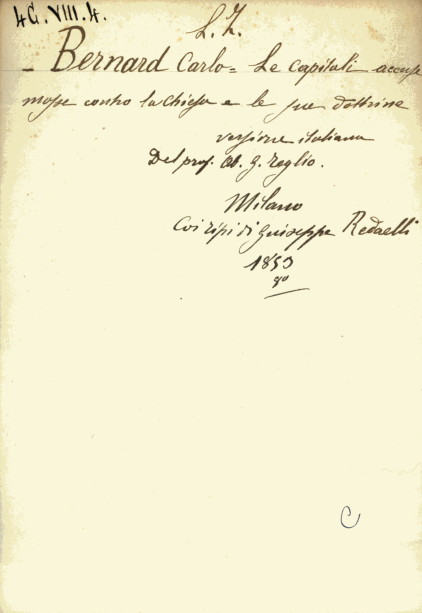 4G.VIII.4.
L. Z.
- Bernard Carlo = Le capitali accuse
mosse contro la Chiesa e le sue dottrine
versione italiana
Del prof. Ab. G. Teglio.
Milano
Coi tipi di Giuseppe Redaelli
1853
8°
C